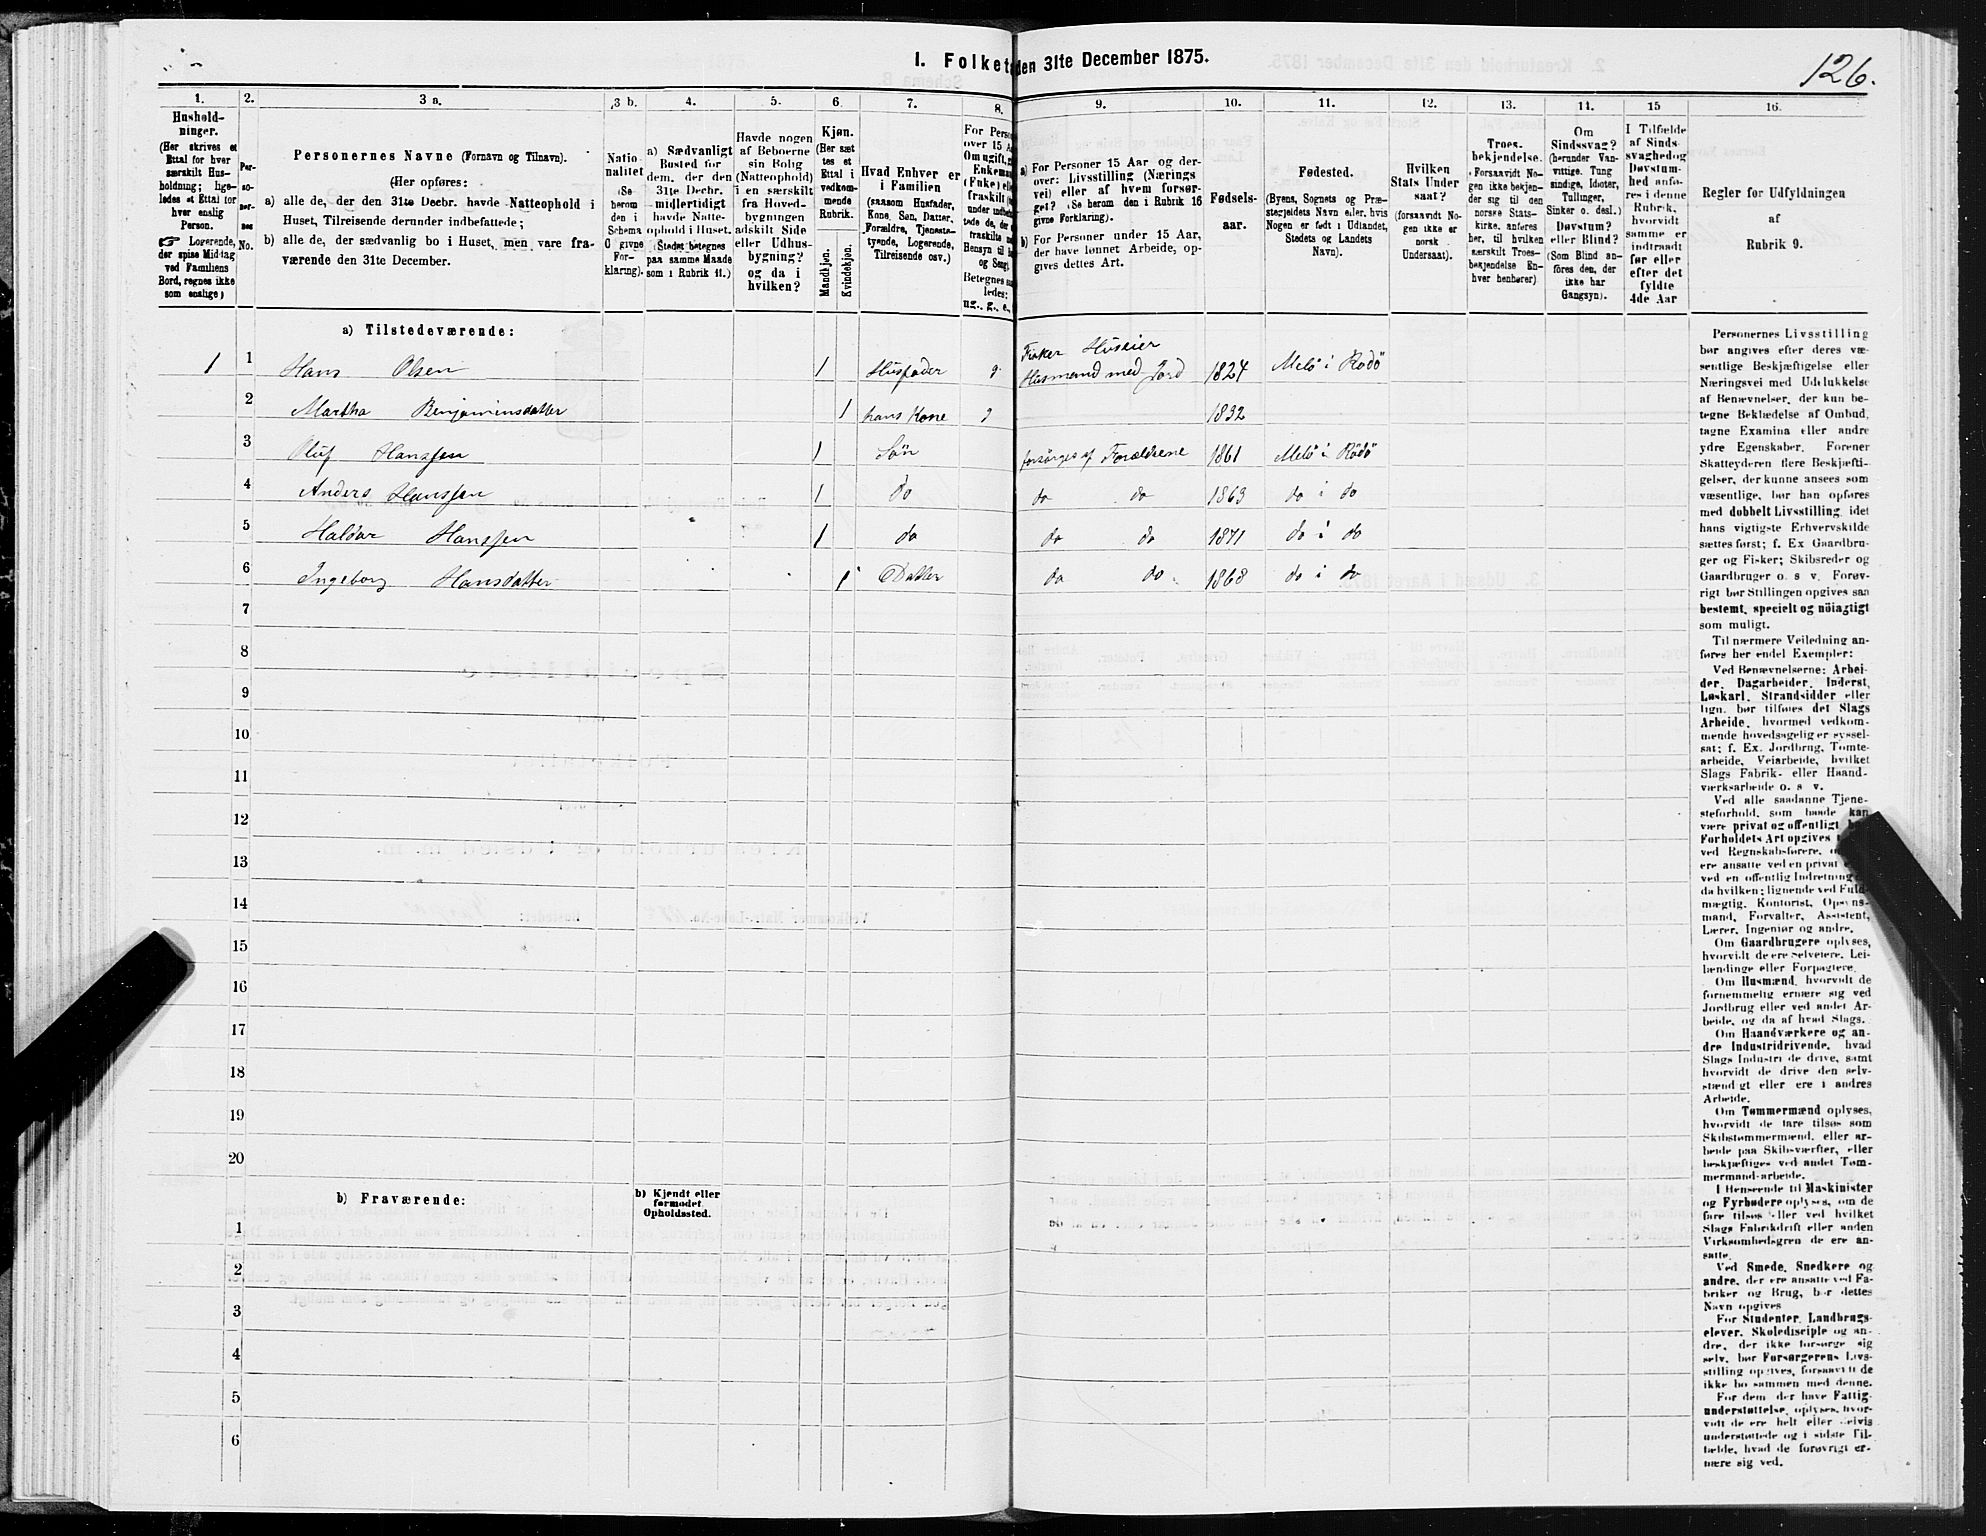 126.
I. Folket
den 31te December 1875.
1. 2. 3 a. 3 b. 4. 5. 6. 7. 8. 9. 10. 11. 12. 13. 14. 15 16.
Hushold-
ninger.
(Her skrives et
Ettal for hver
særskilt Hus-
holdning; lige-
ledes et Ettal for
hver enslig
Person.
☞ Logerende,
der spise Middag
ved Familiens
Bord, regnes ikke
som enslige)
Per-
so-
ner-
nes
No.
Personernes Navne (Fornavn og Tilnavn).
(Her opføres:
a) alle de, der den 31te Decbr. havde Natteophold i
Huset, Tilreisende derunder indbefattede;
b) alle de, der sædvanlig bo i Huset, men vare fra-
værende den 31te December.
Natio-
nalitet
(Se
herom
den i
Schema
C givne
For-
klaring).
a) Sædvanligt
Bosted for
dem, der den
31te Decbr.
midlertidigt
havde Natte-
ophold i Huset.
(Stedet betegnes
paa samme Maade
som i Rubrik 11.)
Havde nogen
af Beboerne
sin Bolig
(Natteophold)
i en særskilt
fra Hoved-
bygningen
adskilt Side
eller Udhus-
bygning?
og da i
hvilken?
Kjøn.
(Her sæt
tes et
Ettal i
vedkom-
mende
Rubrik.
Mandkjøn.
Kvindekjøn.
Hvad Enhver er
i Familien
(saasom Husfader,
Kone, Søn, Datter,
Forældre, Tjeneste-
tyende, Logerende,
Tilreisende osv.)
For Perso
over 15 A
Om ugift, g
Enkeman
(Enke) el
fraskilt (
under indb
tede de, de
fraskilte
Hensyn til b
og Seng).
Betegnes sa
ledes:
ug., g., e.,
a) For Personer 15 Aar og der-
over: Livsstilling (Nærings
vei) eller af hvem forsør-
get? (Se herom den i Rubrik 16
givne Forklaring).
b) For Personer under 15 Aar,
der have lønnet Arbeide, op-
gives dettes Art.
Fødsels-
aar.
Fødested.
(Byens, Sognets og Præ-
stegjeldets Navn eller, hvis
Nogen er født i Udlandet,
Stedets og Landets
Navn).
Hvilken
Stats Under
saat?
(forsaavidt No-
gen ikke er
norsk
Undersaat).
Troes-
bekjendelse.
(Forsaavidt No-
gen ikke bekjen-
der sig til den
norske Stats-
kirke, anføres
her, til hvilken
særskilt Troes-
bekjendelse En-
hver henhører)
Om
Sindssvag?
(herunder Van-
vittige, Tung
sindige, Idioter,
Tullinger,
Sinker o. desl.)
Døvstum?
eller Blind?
(Som Blind an-
føres den, der
ikke har
Gangsyn).
I Tilfælde
af Sinds-
svaghed og
Døvstum-
hed anfø-
res i denne
Rubrik,
hvorvidt
samme er
indtraadt
før eller
efter det
fyldte
4de Aar
Regler for Udfyldningen
af
Rubrik 9.
a) Tilstedeværende:
1 1 Hans Olsen 1 Husfader g Fisker Huseier
Husmand med Jord 1824 Melö i Rödö
2 Martha Benjaminsdatter 1 hans Kone g 1832
3 Oluf Hanssen 1 Sön forsörges af Forældrene 1861 Melö i Rödö
4 Anders Hanssen 1 do do do 1863 do i do
5 Haldar Hanssen 1 do do do 1871 do i do
6 Ingeborg Hansdatter 1 Datter do do 1868 do i do
7
8
9
10
11
12
13
14
15
16
17
18
19
20
b) Fraværende:
b) Kjendt eller
formodet
Opholdssted.
1
2
3
4
5
6
Personernes Livsstilling
bør angives efter deres væ-
sentlige Beskjæftigelse eller
Næringsvei med Udelukkelse
af Benævnelser, der kun be-
tegne Beklædelse af Ombud,
tagne Examina eller andre
ydre Egenskaber. Forener
Skatteyderen flere Beskjæfti-
gelser, der kunne ansees som
væsentlige, bør han opføres
med dobbelt Livsstilling, idet
hans vigtigste Erhvervskilde
sættes først; f. Ex Gaardbru-
ger og Fisker; Skibsreder og
Gaardbruger o. s v. Forøv-
rigt bør Stillingen opgives saa
bestemt, specielt og nöiagtigt
som muligt.
Til nærmere Veiledning an-
føres her endel Exempler:
Ved Benævnelserne: Arbei-
der, Dagarbeider, Inderst,
Løskarl, Strandsidder eller
lign. bør tilføies det Slags
Arbeide, hvormed vedkom-
mende hovedsagelig er syssel-
sat; f. Ex. Jordbrug, Tomte-
arbeide, Veiarbeide, hvilket
Slags Fabrik- eller Haand-
værksarbeide o. s v.
Ved alle saadanne Tjene-
steforhold, som baade kan
være privat og offentligt, b
Forholdets Art opgives
ved Regnskabsførere,
ere ansatte ved en privat e
ved en offentlig Indretning
da hvilken; lignende ved Fuld-
mægtig, Kontorist, Opsyns-
mand, Forvalter, Assistent,
Lærer, Ingeniør og andre.
Om Gaardbrugere oplyses,
hvorvidt de ere Selveiere, Lei-
lændinge eller Forpagtere.
Om Husmænd, hvorvidt de
fornemmelig ernære sig ved
Jordbrug eller ved andet Ar-
beide, og da af hvad Slags.
Om Haandværkere og an-
dre Industridrivende, hvad
Slags Industri de drive, samt
hvorvidt de drive den selv-
stændigt eller ere i andres
Arbeide.
Om Tømmermænd oplyses,
hvorvidt de fare tilsøs som
Skibstømmermænd, eller ar-
beide paa Skibsværfter, eller
beskjæftiges ved andet Tøm-
mermand-arbeide.
I Henseende til Maskinister
og Fyrbødere oplyses, om de
fare tilsøs eller ved hvilket
Slags Fabrikdrift eller anden
Virksomhedsgren de ere an-
satte.
Ved Smede, Snedkere og
andre, der ere ansatte ved Fa-
briker og Brug, bør dettes
Navn opgives
For Studenter, Landbrugs-
elever, Skoledisciple og an-
dre, der ikke forsørge sig
selv, bør Forsørgerens Livs-
stilling opgives, forsaavidt de
ikke bo sammen med denne.
For dem, der have Fattig-
understøttelse, oplyses, hvor-
vidt de ere helt eller delvis
understøttede og i sidste Til-
fælde, hvad de forøvrigt er-
nære sig ved.